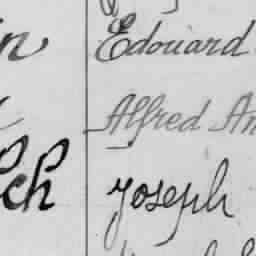 in Edouard
Alfred An
ch Joseph